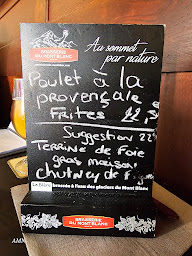 BRASSERIE
DU MONT BLANC
Au sommet
par nature
Poulet à la
provençale e
Frites 22,5
Suggestion 22€
Terrine de Foie
gras maison
chutney de figue
La Bière brassée à l'eau des glaciers du Mont Blanc
BRASSERIE
DU MONT BLANC